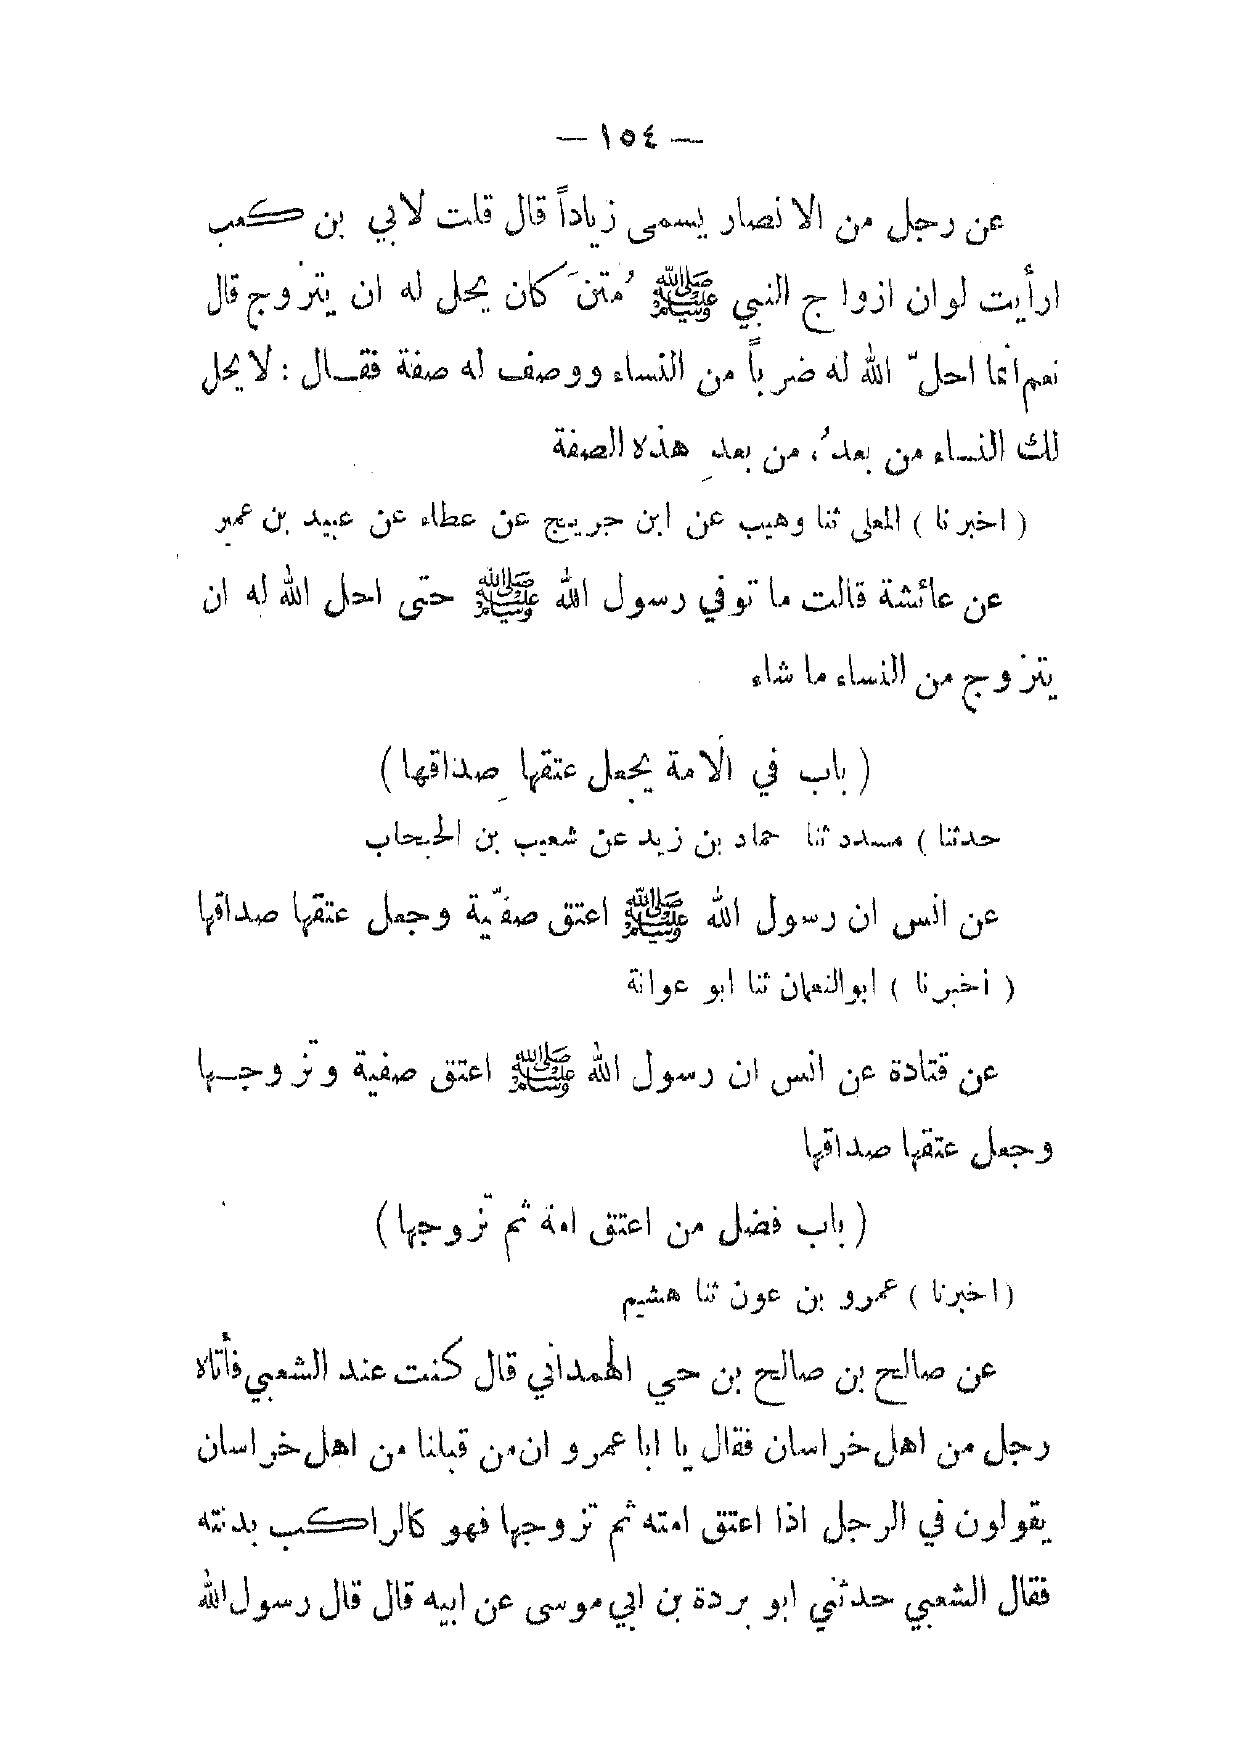 — ١٥٤ —
عن رجل من الانصار يسمى زياداً قال قلت لابي بن كعب
ارأيت لو ان ازواج النبي ﷺ مُتنَ كان يحل له ان يتزوج قال
نعم انما احلّ الله له ضرباً من النساء ووصف له صفة فقال : لا يحل
لك النساء من بعدُ ، من بعدِ هذه الصفة
( اخبرنا ) المعلى ثنا وهيب عن ابن جريج عن عطاء عن عبيد بن عمير
عن عائشة قالت ما توفي رسول الله ﷺ حتى احل الله له ان
يتزوج من النساء ما شاء
( باب في الامة يجعل عتقها صداقها )
حدثنا ) مسدد ثنا حماد بن زيد عن شعيب بن الحبحاب
عن انس ان رسول الله ﷺ اعتق صفيّة وجعل عتقها صداقها
( أخبرنا ) ابو النعمان ثنا ابو عوانة
عن قتادة عن انس ان رسول الله ﷺ اعتق صفية وتزوجها
وجعل عتقها صداقها
( باب فضل من اعتق امة ثم تزوجها )
( اخبرنا ) عمرو بن عون ثنا هشيم
عن صالح بن صالح بن حي الهمداني قال كنت عند الشعبي فأتاه
رجل من اهل خراسان فقال يا ابا عمرو ان من قبلنا من اهل خراسان
يقولون في الرجل اذا اعتق امته ثم تزوجها فهو كالراكب بدنته
فقال الشعبي حدثني ابو بردة بن ابي موسى عن ابيه قال قال رسول الله